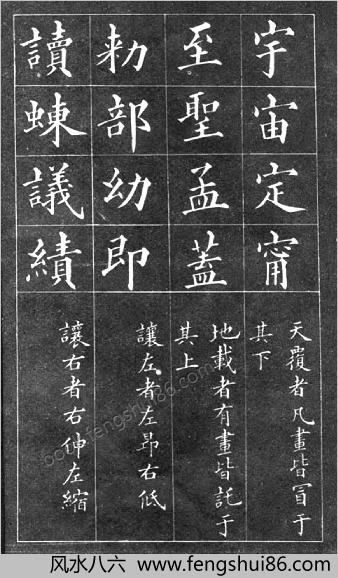 宇宙定甯
天覆者凡畫皆冒于
其下
至聖孟蓋
地載者有畫皆託于
其上
勑部幼即
讓左者左昂右低
讀蝀議績
讓右者右伸左縮
风水八六 www.fengshui86.com